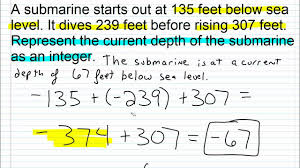 A submarine starts out at 135 feet below sea
level. It dives 239 feet before rising 307 feet.
Represent the current depth of the submarine
as an integer. The submarine is at a current
depth of 67 feet below sea level.
-135 + (-239) + 307 =
-374 + 307 = -67